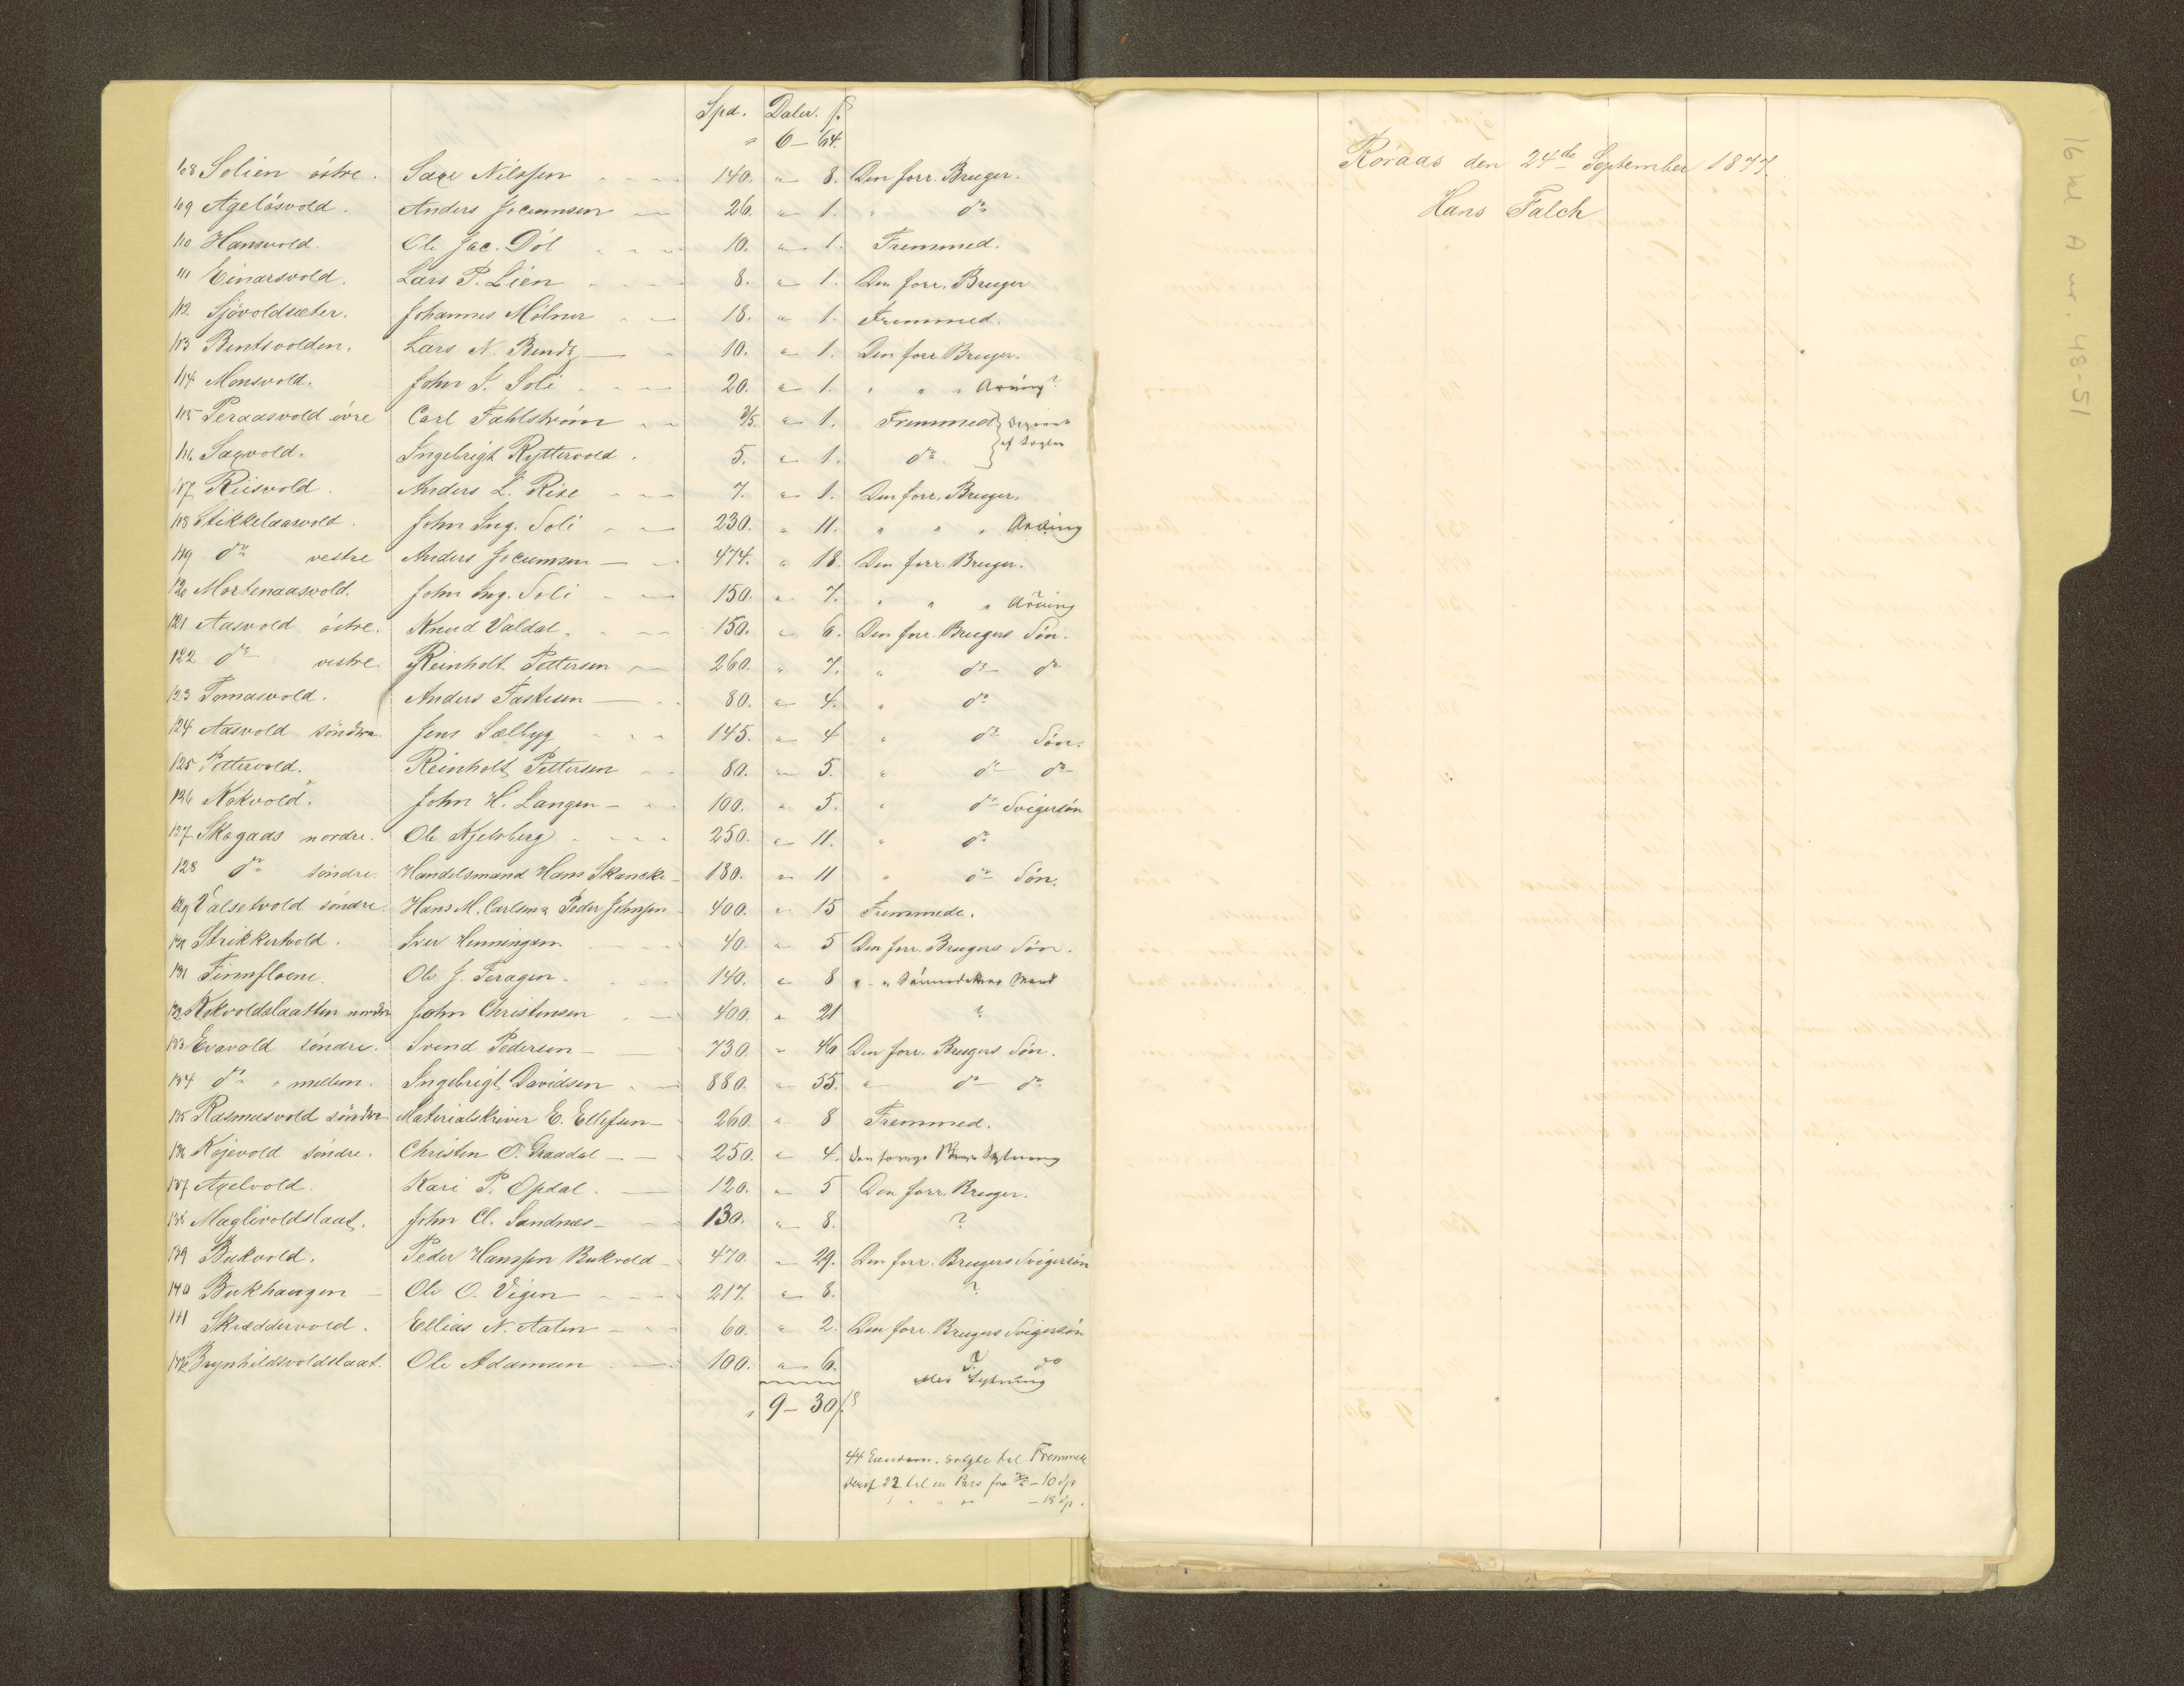 Spd. Daler. ß.
" 6 - 64.
108 Solien östre. Saxe Nilssen 140. " 8. Den forr. Bruger.
109 Agelösvold. Anders Jocumsen 26. " 1. " do
110 Hansvold. Ole Jac. Döl 10. " 1. Fremmed.
111 Einarsvold. Lars P. Lien 8. " 1. Den forr. Bruger
112 Sjövoldsæter. Johannes Mölner 18. " 1. Fremmed.
113 Bentsvolden. Lars N. Bendz 10. " 1. Den forr Bruger.
114 Monsvold. John J. Soli 20. " 1. " " " Arving?
115 Peraasvold övre Carl Fahlström 3/5. " 1. Fremmed
116 Saxvold. Ingebrigt Ryttervold. 5. " 1. do
117 Riisvold. Anders L. Rise 7. " 1. Den forr. Bruger.
118 Stikkelaasvold. John Ing. Soli 230. " 11. " " " Arving
119 do vestre Anders Jocumsen 474. " 18. Den forr. Bruger.
120 Mortenaasvold. John Ing. Soli 150. " 7. " " " Arving
121 Aasvold östre. Knud Valdal. 150. " 6. Den forr. Brugers Sön.
122 do vestre. Reinholt Pettersen 260. " 7. " do do
123 Tomasvold. Anders Fastesen 80. " 4. " do
124 Aasvold söndre. Jens Sælbyg 145. " 4 " do Sön.
125 Pettervold. Reinholt Pettersen 80. " 5. " do do
126 Kokvold. John H. Langen 100. " 5. " do Svigersön
127 Skogaas nordre. Ole Kjelsberg 250. " 11. " do
128 do söndre. Handelsmand Hans Skancke 180. " 11 " do Sön.
129 Valsetvold söndre. Hans M. Carlsen & Peder Johnsen 400. " 15 Fremmede.
130 Strikkertvold. Iver Henningsen 40. " 5 Den forr. Brugers Sön.
131 Finnfloene. Ole J. Feragen 140. " 8 " " Sönnedatters Mand
132 Kokvoldslaatten nordre John Christensen 400. " 21 ?
133 Evavold söndre. Svend Pedersen 730. " 46 Den forr. Brugers Sön.
134 do " mellem. Ingebrigt Davidsen 880. " 55. " do do
135 Rasmusvold söndre Materialskriver E. Ellefsen 260. " 8 Fremmed.
136 Köjevold söndre. Christen O. Graadal 250. " 4. Den forrige Brugers Slægtning
137 Axelvold. Kari P. Opdal. 120. " 5 Den forr. Bruger.
138 Maglivoldslaat. John Cl. Sandnes 130. " 8. ?
139 Bukvold. Peder Hanssen Bukvold 470. " 29. Den forr. Brugers Svigersön
140 Bukhaugen Ole O. Vigen 217. " 8. ?
141 Skræddervold. Ellias N. Aalen 60. " 2. Den forr. Brugers Svigersön
142 Brynhildsvoldslaat. Ole Adamsen 100. " 6. do do
eller Slægtning
" 9 - 30 ß
44 solgte til Fremmede
deraf 22 til en Pris fra - 10 Sp
" " " - 18 Sp.
Röraas den 24de September 1877.
Hans Falch
16 kl A nr. 48-51